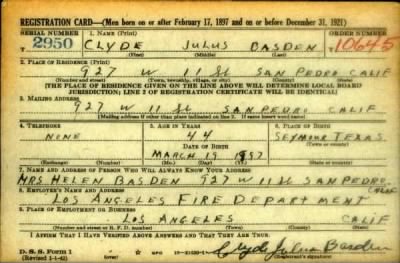 REGISTRATION CARD—(Men born on or after February 17, 1897 and on or before December 31, 1921)
SERIAL NUMBER 1. NAME (Print) ORDER NUMBER
2950 CLYDE JULUS BASDEN 10645
2. PLACE OF RESIDENCE (Print)
927 W 11 St SAN PEDRO CALIF
(Number and street) (Town, township, village, or city) (County) (State)
[THE PLACE OF RESIDENCE GIVEN ON THE LINE ABOVE WILL DETERMINE LOCAL BOARD
JURISDICTION; LINE 2 OF REGISTRATION CERTIFICATE WILL BE IDENTICAL]
3. MAILING ADDRESS
927 W 11 St SAN PEDRO CALIF
[Mailing address if other than place indicated on line 2. If same insert word same]
4. TELEPHONE 5. AGE IN YEARS 6. PLACE OF BIRTH
NONE 44 SEYMOUR TEXAS
DATE OF BIRTH
MARCH 19 1897
(Exchange) (Number) (Mo.) (Day) (Yr.) (State or country)
7. NAME AND ADDRESS OF PERSON WHO WILL ALWAYS KNOW YOUR ADDRESS
MRS HELEN BASDEN 927 W 11 St SAN PEDRO, CALIF
8. EMPLOYER'S NAME AND ADDRESS
LOS ANGELES FIRE DEPARTMENT
9. PLACE OF EMPLOYMENT OR BUSINESS
LOS ANGELES CALIF
(Number and street or R. F. D. number) (Town) (County) (State)
I AFFIRM THAT I HAVE VERIFIED ABOVE ANSWERS AND THAT THEY ARE TRUE.
D. S. S. Form 1 Clyde Julus Basden
(Revised 1-1-42) GPO (Registrant's signature)